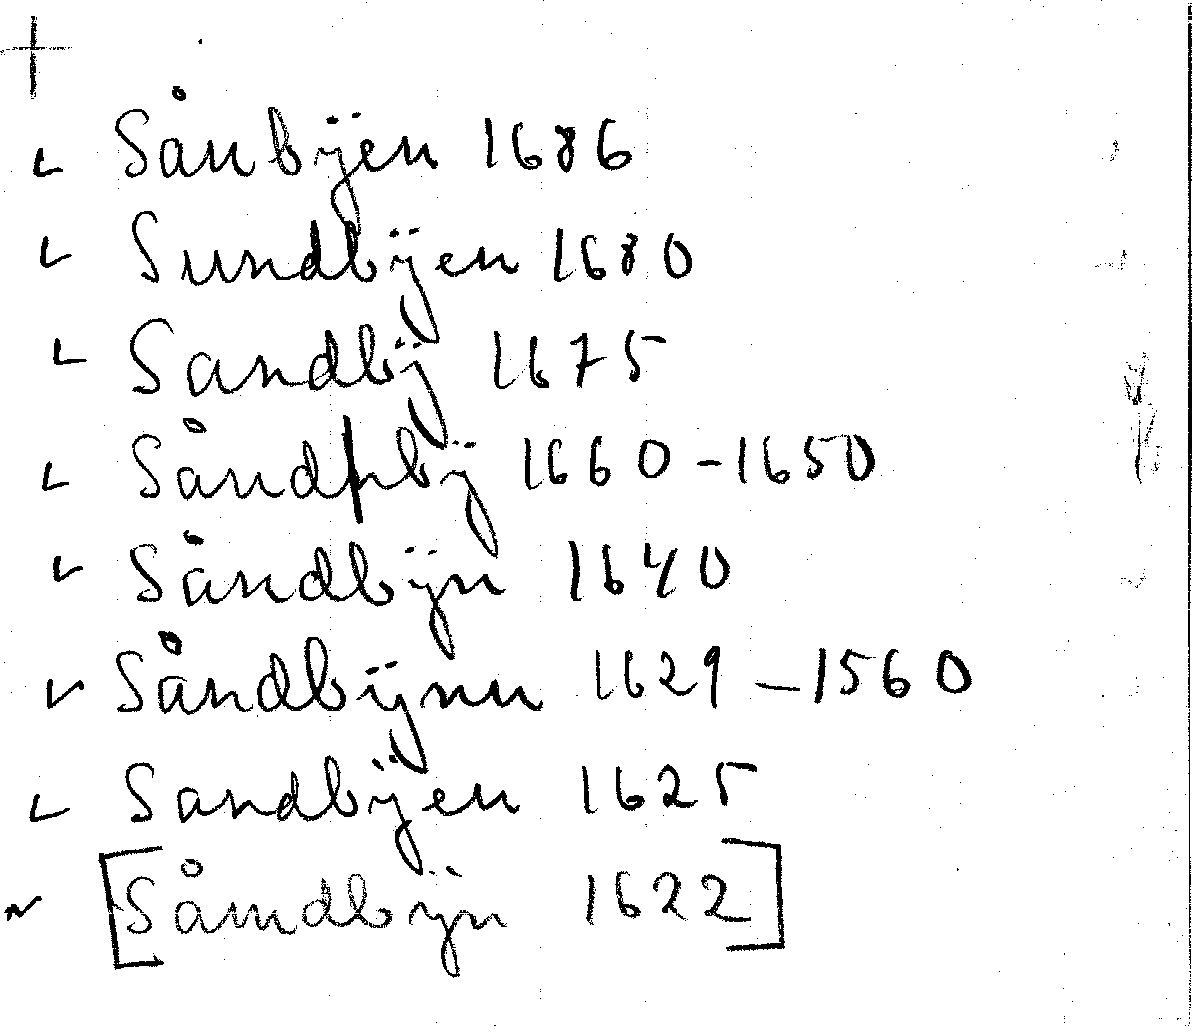 Sånbÿen 1686
Sundbÿen 1680
Sandbÿ 1675
Såndbÿ 1660-1650
Såndbÿn 1640
Såndbÿnn 1629-1560
Sandbÿen 1625
[Såmdbÿn 1622]